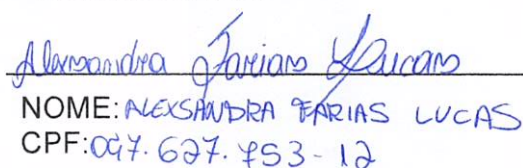 Alexsandra Farias Lucas
NOME: ALEXSANDRA FARIAS LUCAS
CPF: 047.627.753-12